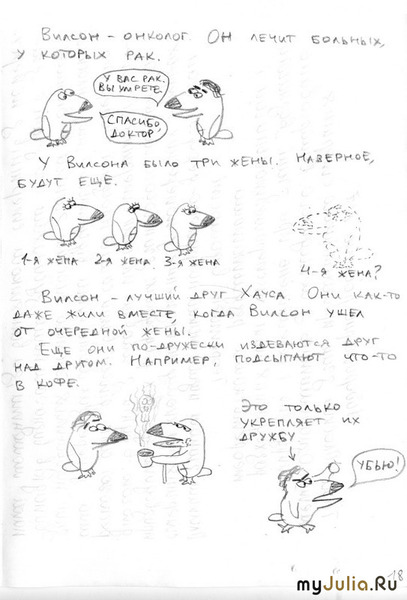 Вилсон – онколог. Он лечит больных,
у которых рак.
У вас рак.
Вы умрете.
Спасибо,
доктор
У Вилсона было три жены. Наверное,
будут еще.
1-я жена 2-я жена 3-я жена
4-я жена?
Вилсон – лучший друг Хауса. Они как-то
даже жили вместе, когда Вилсон ушел
от очередной жены.
Еще они по-дружески издеваются друг
над другом. Например, подсыпают что-то
в кофе.
Это только
укрепляет их
дружбу
Убью!
18
myJulia.Ru